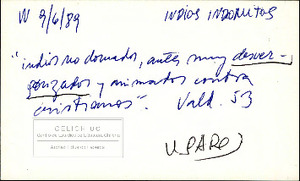 W 9/6/89 INDIOS INDOMITOS
"indios no domados, antes muy desver-
gonzados y animados contra
cristianos". Vald. 53
CELICH UC